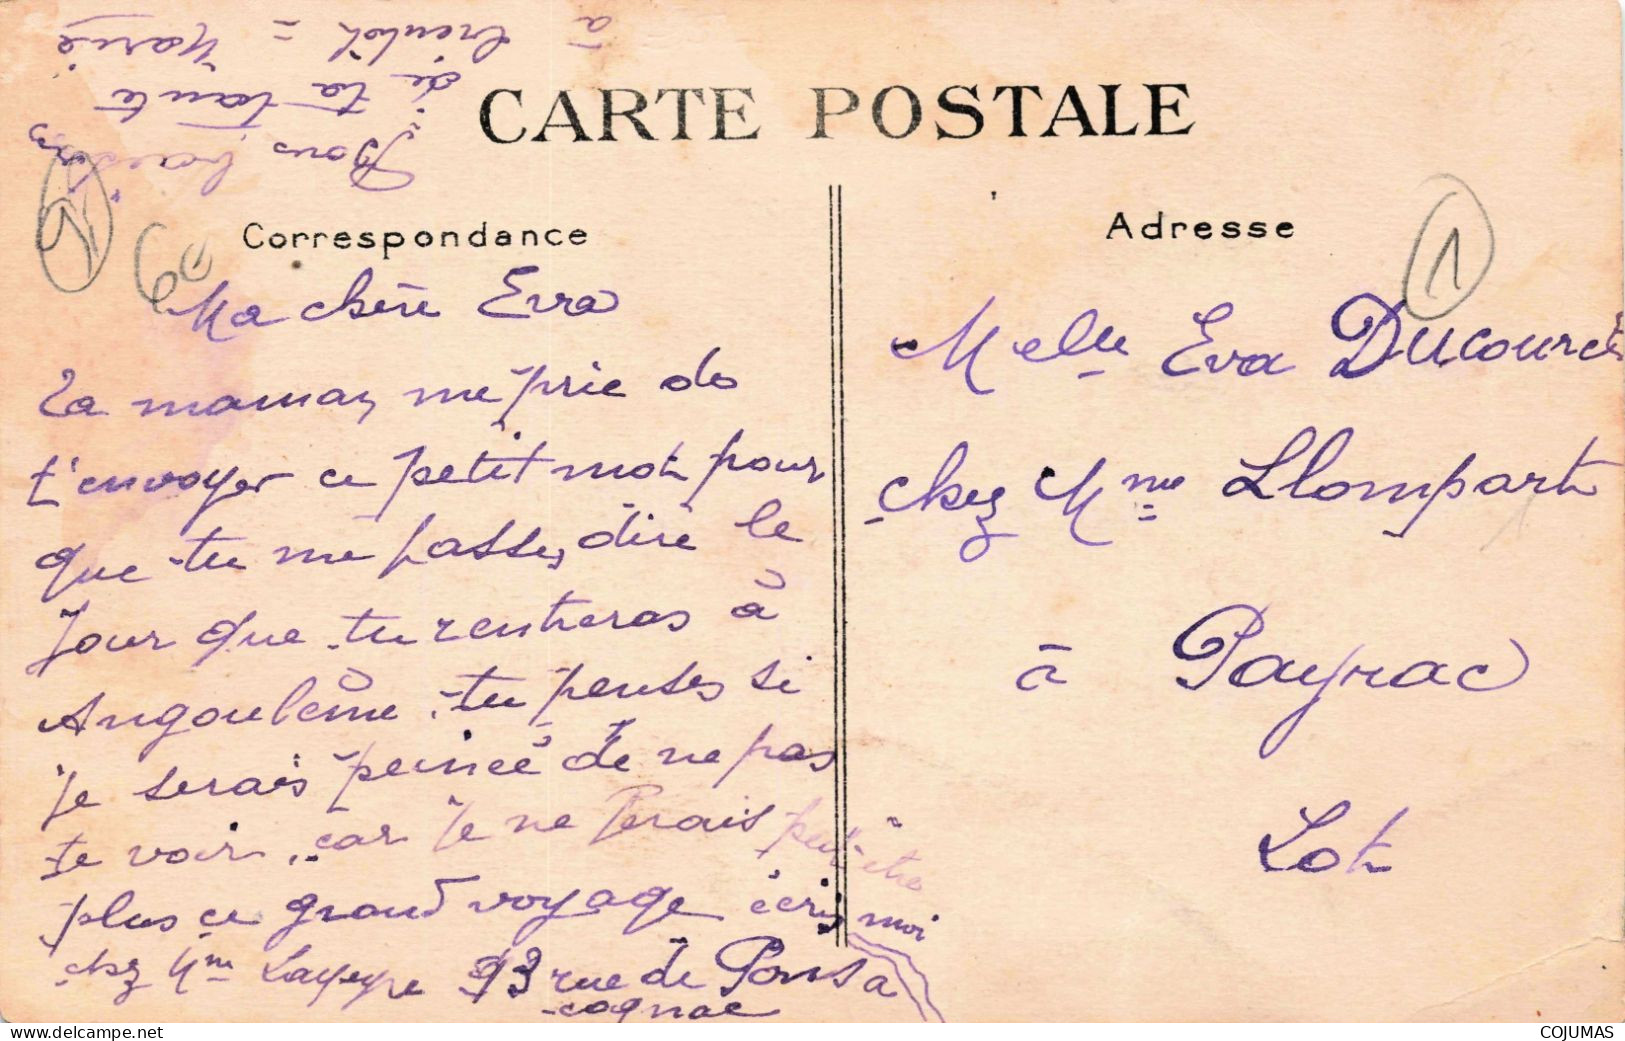 CARTE POSTALE
Correspondance
Ma chère Evva
Ta maman me prie de
t'envoyer ce petit mot pour
que tu me fasses dire le
Jour que tu rentreras à
Angoulême, tu penses si
je serais peinée de ne pas
te voir, car je ne ferais peut-être
plus ce grand voyage écris moi
chez Mme Layeyre 93 rue de Pons a
cognac
Bons baisers
de ta tante
à
bientôt = Marie
60
Adresse
1
Melle Eva Ducouret
chez Mme Llompart
à Payrac
Lot
COJUMAS